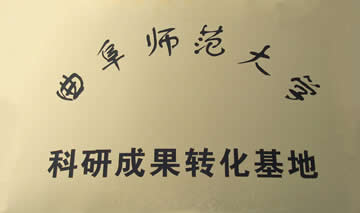 曲阜师范大学
科研成果转化基地